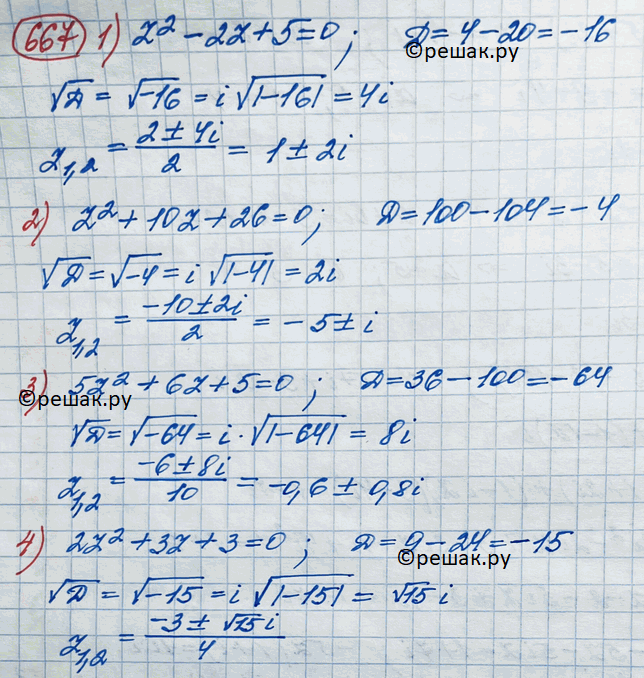 667 1) z² - 2z + 5 = 0; D = 4 - 20 = -16
©решак.ру
√D = √-16 = i √|-16| = 4i
z₁,₂ = (2 ± 4i)/2 = 1 ± 2i
2) z² + 10z + 26 = 0; D = 100 - 104 = -4
√D = √-4 = i √|-4| = 2i
z₁,₂ = (-10 ± 2i)/2 = -5 ± i
3) 5z² + 6z + 5 = 0; D = 36 - 100 = -64
©решак.ру
√D = √-64 = i · √|-64| = 8i
z₁,₂ = (-6 ± 8i)/10 = -0,6 ± 0,8i
4) 2z² + 3z + 3 = 0; D = 9 - 24 = -15
©решак.ру
√D = √-15 = i √|-15| = √15 i
z₁,₂ = (-3 ± √15 i)/4